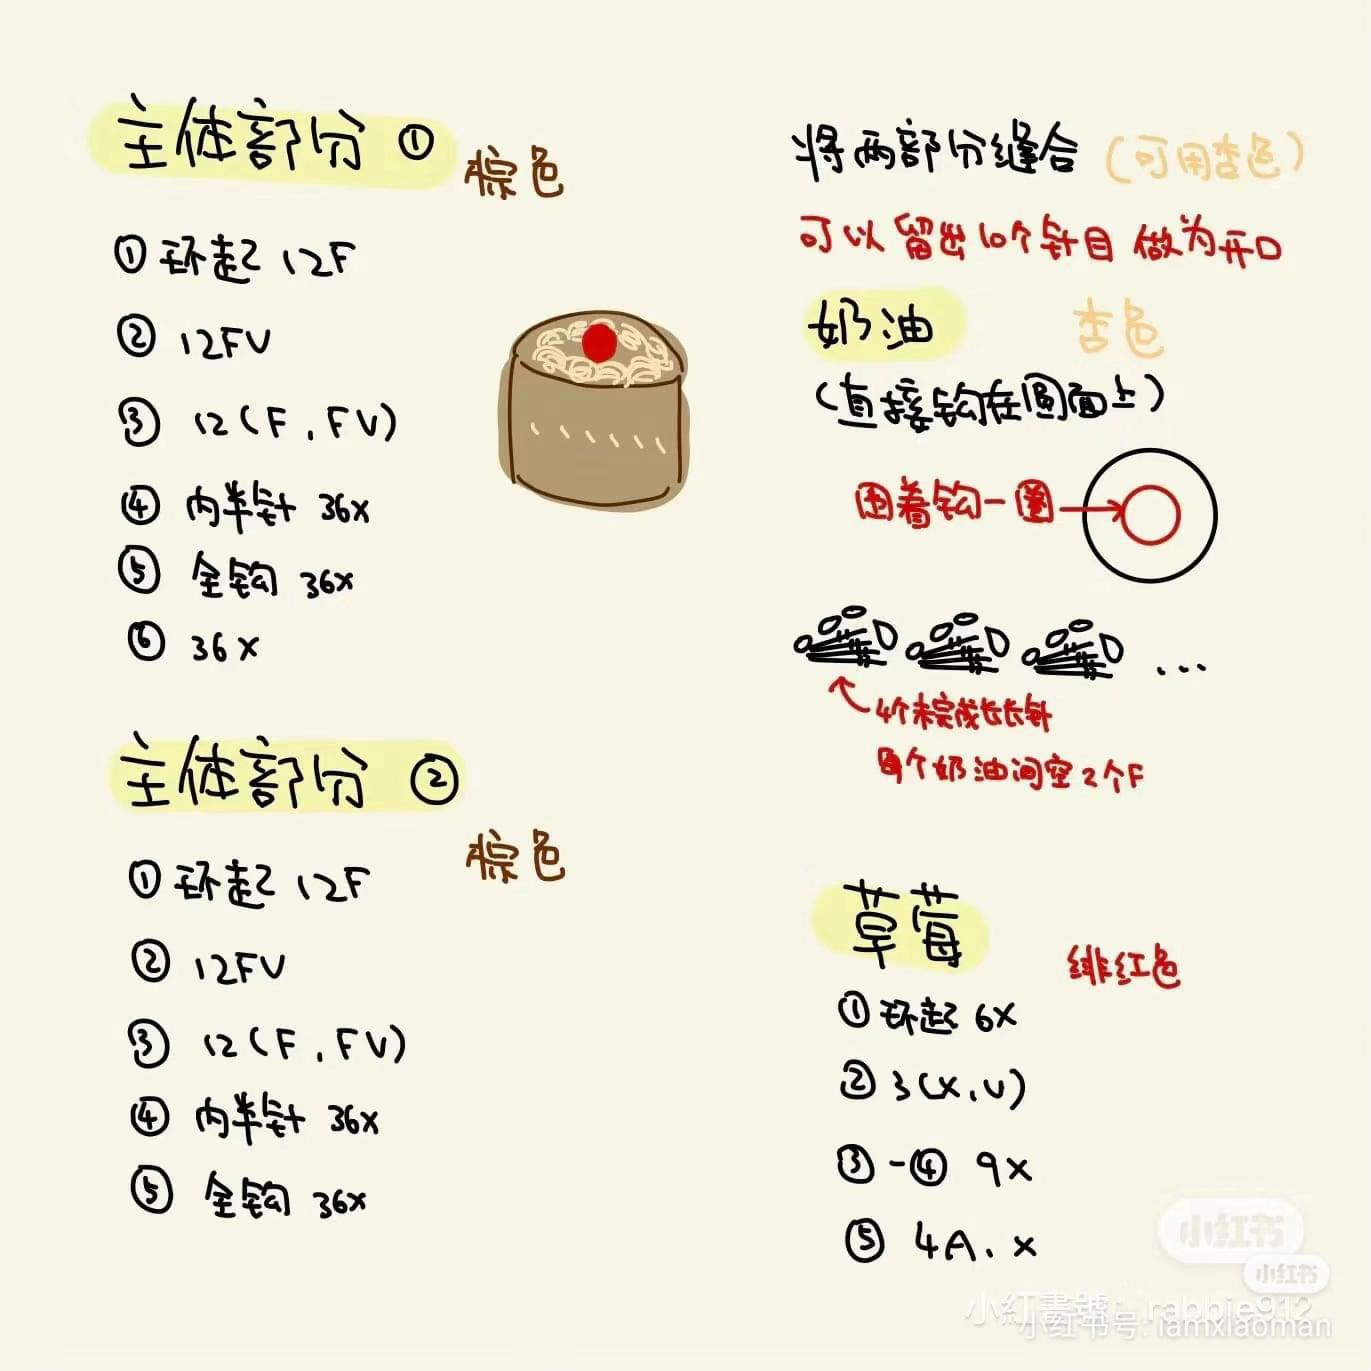 主体部分 ①
棕色
① 环起 12F
② 12FV
③ 12(F, FV)
④ 内半针 36x
⑤ 全钩 36x
⑥ 36x
主体部分 ②
棕色
① 环起 12F
② 12FV
③ 12(F, FV)
④ 内半针 36x
⑤ 全钩 36x
将两部分缝合 (可用杏色)
可以留出10个针目做为开口
奶油 杏色
(直接钩在圆面上)
围着钩一圈
...
4个未完成长长针
每个奶油间空2个F
草莓
绯红色
① 环起 6x
② 3(x, v)
③-④ 9x
⑤ 4A, x
小红书
小红书
小紅書號: rabbie912
小红书号: iamxiaoman